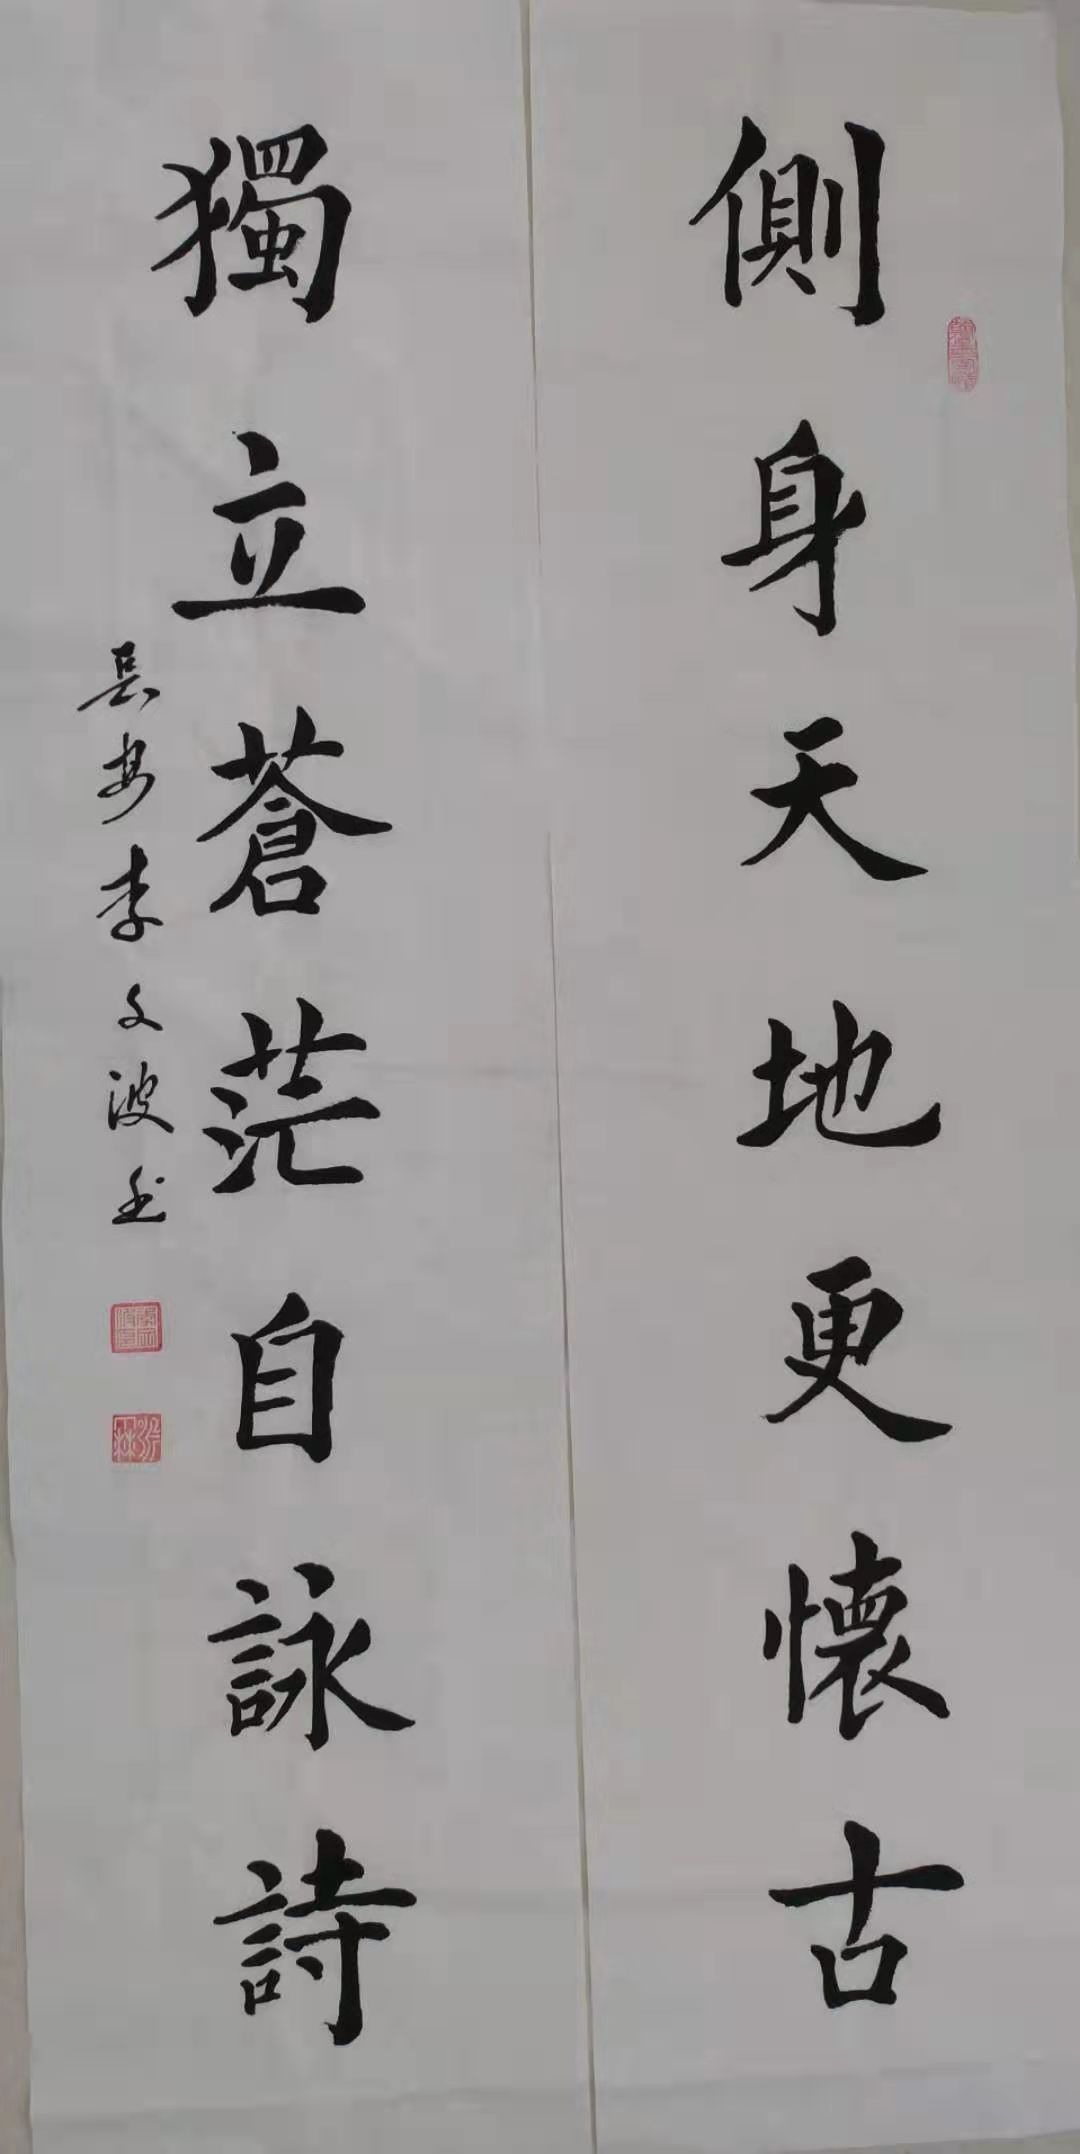 側身天地更懷古
獨立蒼茫自詠詩
長安李文波書